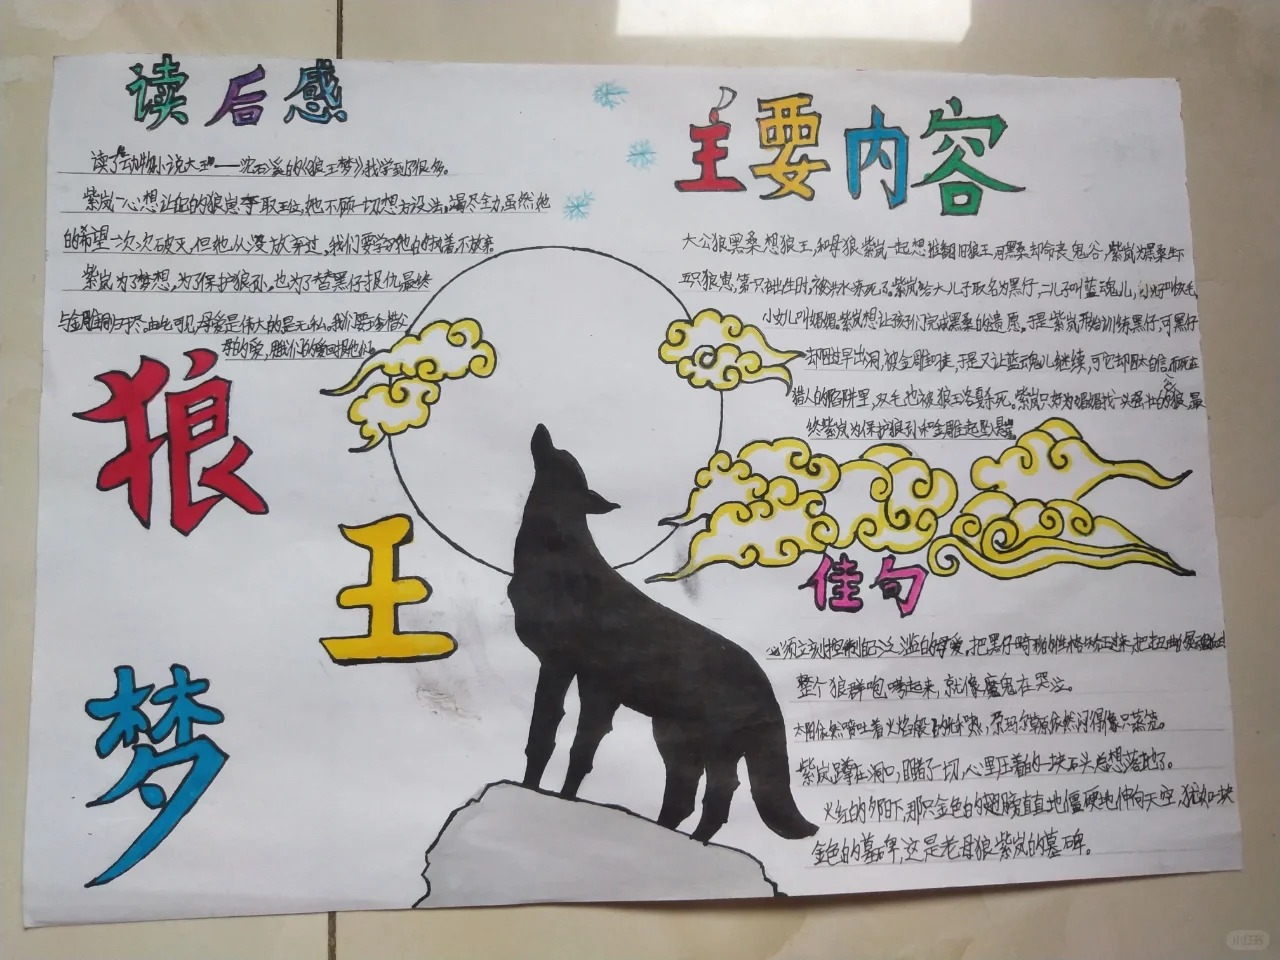 读后感
读了"动物小说大王"——沈石溪的《狼王梦》我学到了很多。
紫岚一心想让自己的狼崽争取王位,她不顾一切想方设法,竭尽全力,虽然她
的希望一次次破灭,但她从没放弃过,我们要学习她的执着不放弃
紫岚为了梦想,为了保护狼孙,也为了替黑仔报仇,最终
与金雕同归于尽,由此可见,母爱是伟大的是无私,我们要珍惜父
母的爱,用我们的爱回报他们。
狼
王
梦
主要内容
大公狼黑桑想狼王,和母狼紫岚一起想推翻旧狼王,可黑桑却命丧鬼谷,紫岚为黑桑生下
五只狼崽,第一只刚出生时,被洪水淹死了。紫岚给大儿子取名为黑仔,二儿子叫蓝魂儿,小儿子叫双毛,
小女儿叫媚媚。紫岚想让孩子们完成黑桑的遗愿,于是紫岚开始训练黑仔,可黑仔
却因过早出洞,被金雕叼走,于是又让蓝魂儿继续,可它却因太自信,而死在
猎人的陷阱里,双毛也被狼王洛戛杀死。紫岚只好为媚媚找一头强壮的公狼,最
终紫岚为保护狼孙和金雕起坠悬崖
佳句
必须立刻控制自己泛滥的母爱,把黑仔
整个狼群咆嗥起来,就像魔鬼在哭泣。
太阳依然喷吐着火焰般的,尕玛尔草原依然闷得像只蒸笼。
紫岚蹲在洞口,目睹了一切,心里压着的一块石头总想落地了。
火红的夕阳下,那只金色的翅膀直直地僵硬地伸向天空,犹如一块
金色的墓碑,这是老母狼紫岚的墓碑。
小红书